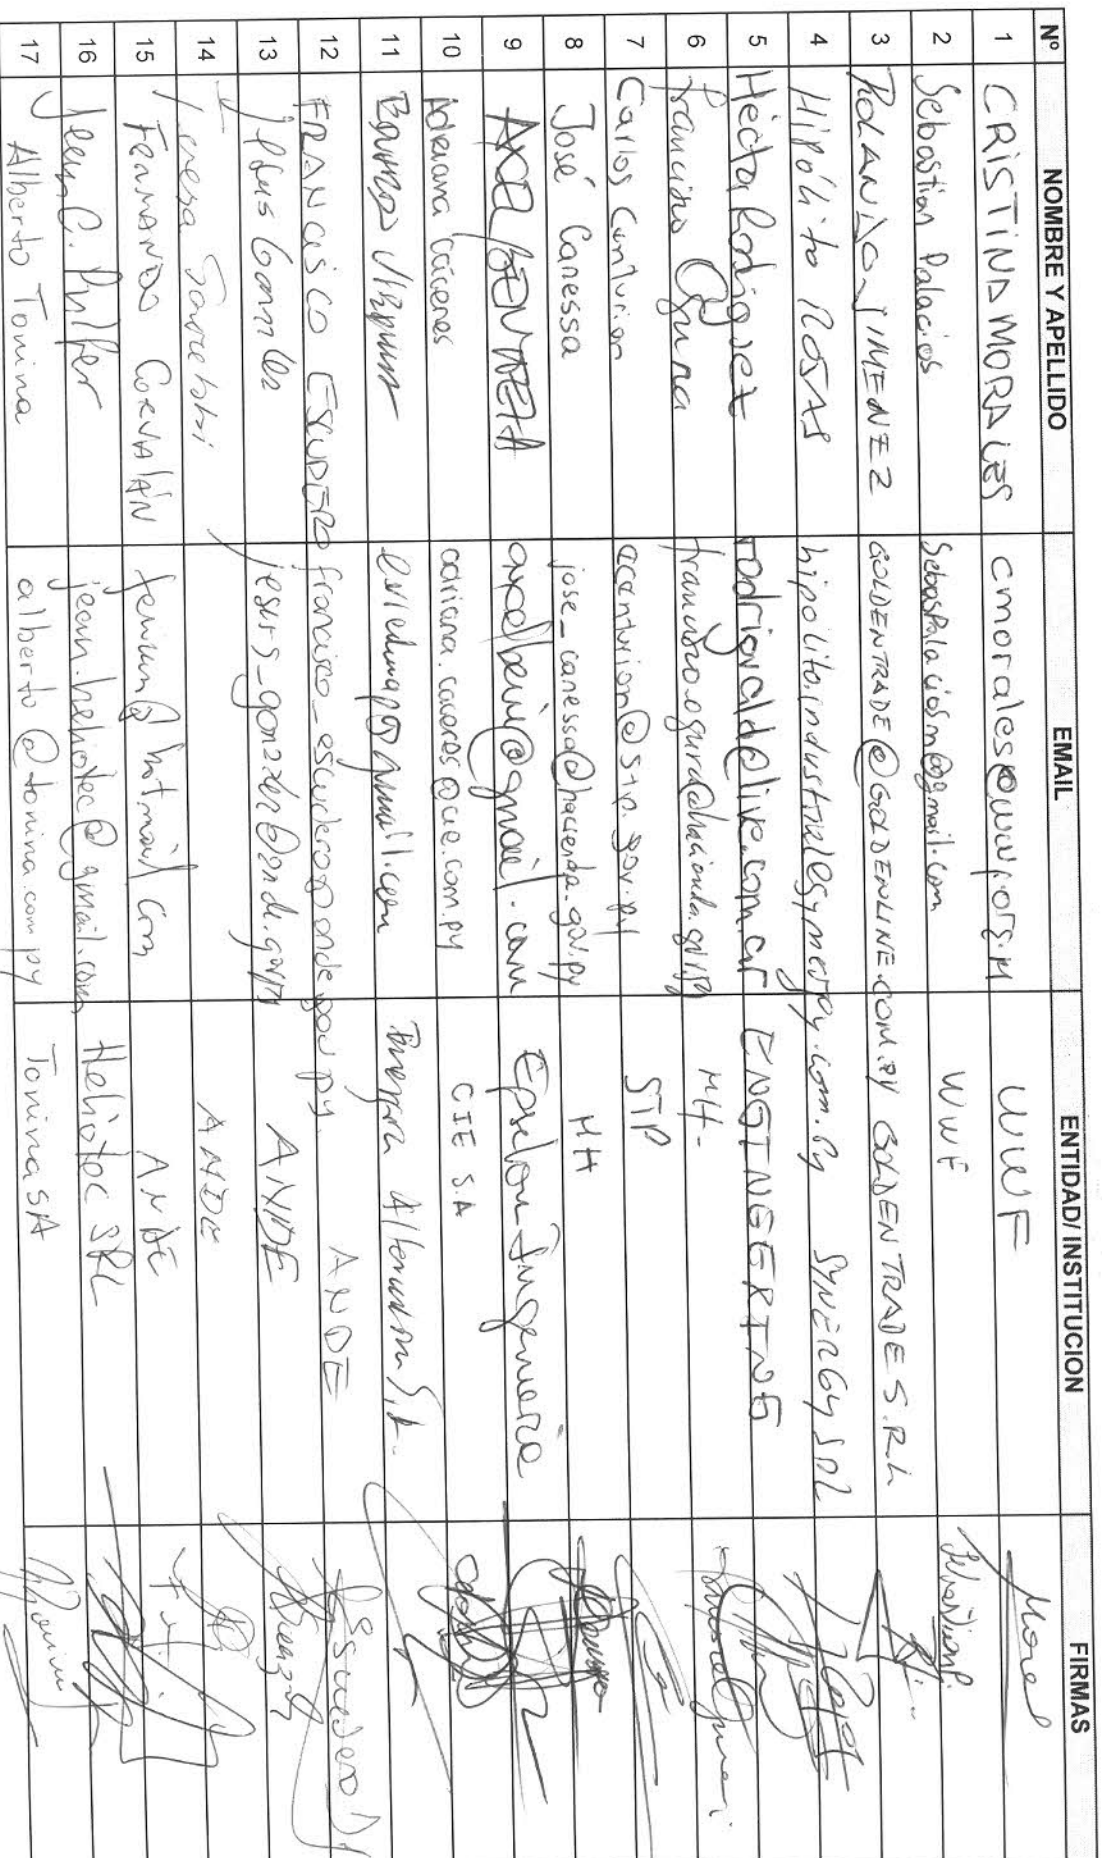 Nº NOMBRE Y APELLIDO EMAIL ENTIDAD/ INSTITUCION FIRMAS
1 CRISTINA MORALES cmorales@wwf.org.py WWF
2 Sebastian Palacios SebasPalaciosm@gmail.com WWF
3 ROLANDO JIMENEZ GOLDENTRADE@GOLDENLINE.COM.PY GOLDEN TRADE S.R.L
4 Hipólito ROJAS hipolito.industrial@synergy.com.py SYNERGY SRL
5 Héctor Rodriguez rodrigvald@live.com.ar ENGINEERING
6 Francisco Ogura francisco.ogura@hacienda.gov.py MH.
7 Carlos Centurion ccenturion@stp.gov.py STP
8 José Canessa jose_canessa@hacienda.gov.py MH
9 AXEL BENITEZ axelbeni@gmail.com Epselon Ingenieria
10 Adriana Cáceres adriana.caceres@cie.com.py CIE S.A
11 @gmail.com Energia Alternativa S.A.
12 FRANCISCO ESCUDERO francisco_escudero@ande.gov.py. ANDE
13 Jesus Gonzalez jesus_gonzalez@ande.gov.py ANDE
14 ANDE
15 FERNANDO CORVALÁN @hotmail.com ANDE
16 Jean C. Pulfer jean.heliotec@gmail.com Heliotec SRL
17 Alberto Tonina alberto@tonina.com.py Tonina SA